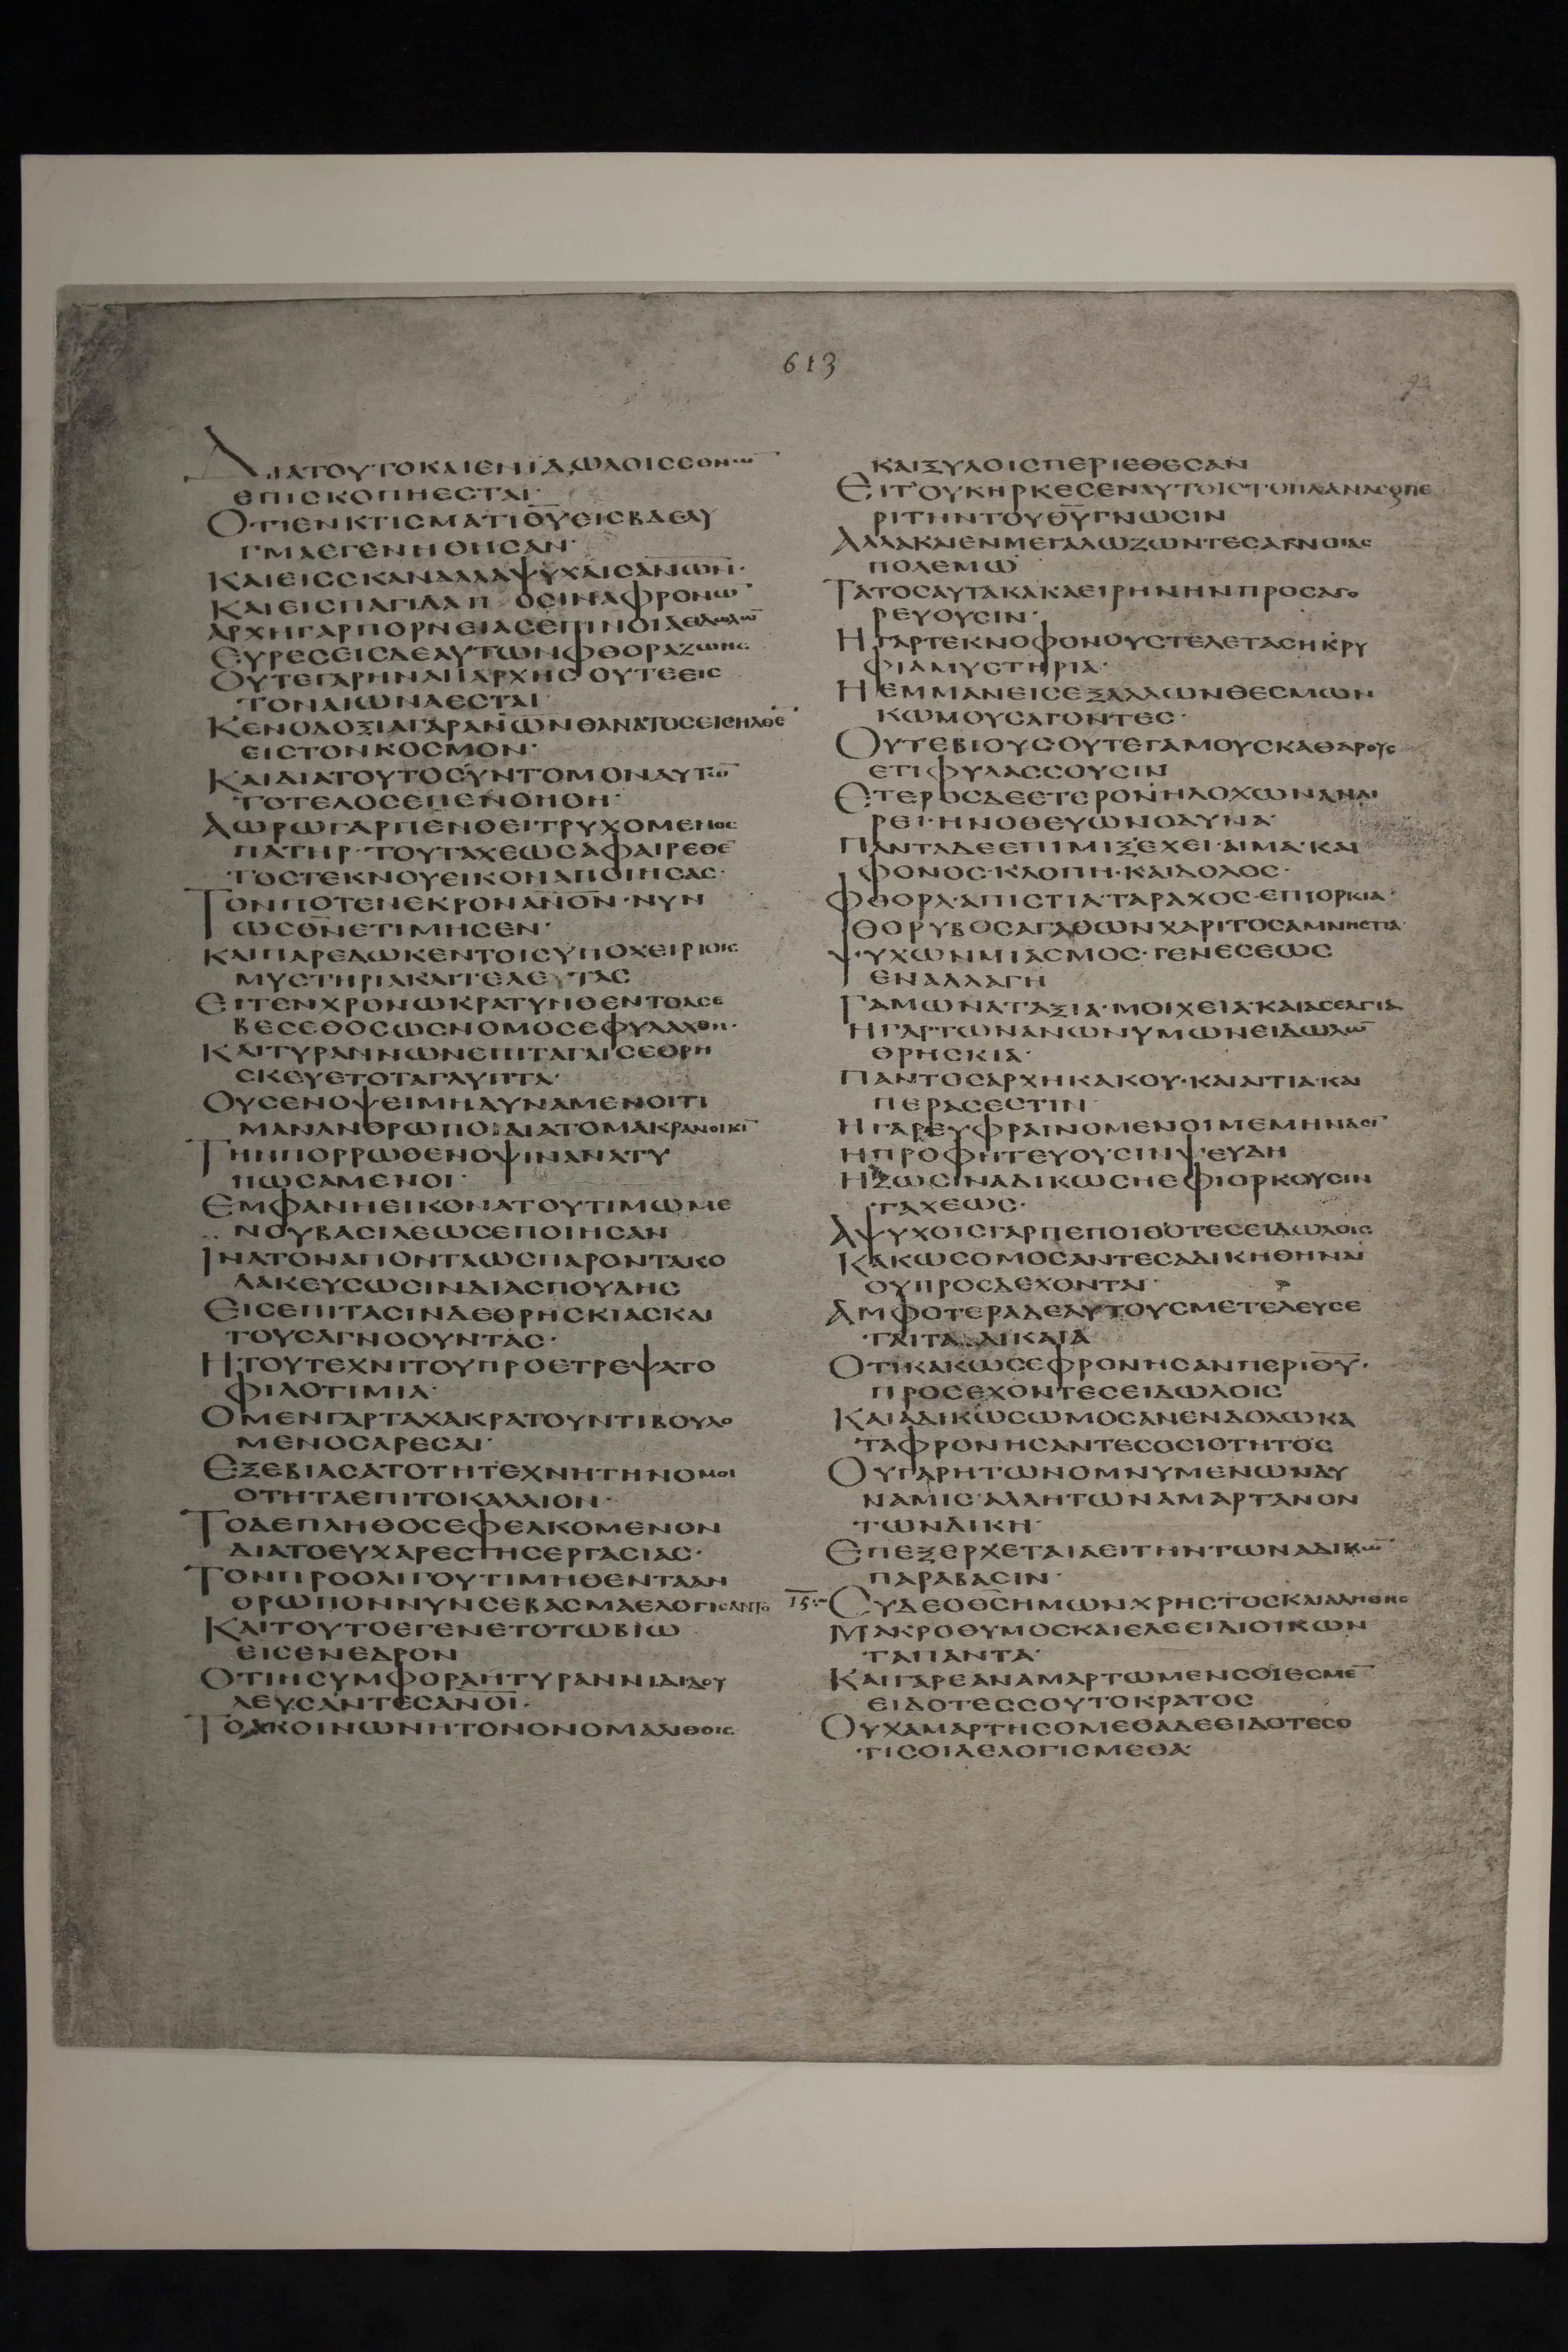 613
93
ΔΙΑΤΟΥΤΟΚΑΙΕΝΙΔΩΛΟΙϹΕΘΝΩ̅
ΕΠΙϹΚΟΠΗΕϹΤΑΙ·
ΟΤΙΕΝΚΤΙϹΜΑΤΙΘ̅Υ̅ΕΙϹΒΔΕΛΥ
ΓΜΑΕΓΕΝΗΘΗϹΑΝ·
ΚΑΙΕΙϹϹΚΑΝΔΑΛΑΨΥΧΑΙϹΑ̅Ν̅Ω̅Ν̅·
ΚΑΙΕΙϹΠΑΓΙΔΑΠ ΟϹΙΝΑΦΡΟΝΩ̅
ΑΡΧΗΓΑΡΠΟΡΝΕΙΑϹΕΠΙΝΟΙΑΕΙΔΩΛΩ̅
ΕΥΡΕϹΕΙϹΔΕΑΥΤΩΝΦΘΟΡΑΖΩΗϹ
ΟΥΤΕΓΑΡΗΝΑΠΑΡΧΗϹΟΥΤΕΕΙϹ
ΤΟΝΑΙΩΝΑΕϹΤΑΙ·
ΚΕΝΟΔΟΞΙΑΓΑΡΑ̅Ν̅Ω̅Ν̅ΘΑΝΑΤΟϹΕΙϹΗΛΘΕ̅
ΕΙϹΤΟΝΚΟϹΜΟΝ·
ΚΑΙΔΙΑΤΟΥΤΟϹΥΝΤΟΜΟΝΑΥΤΩ̅
ΤΟΤΕΛΟϹΕΠΕΝΟΗΘΗ·
ΑΩΡΩΓΑΡΠΕΝΘΕΙΤΡΥΧΟΜΕΝΟϹ
ΠΑΤΗΡ·ΤΟΥΤΑΧΕΩϹΑΦΑΙΡΕΘΕ̅
ΤΟϹΤΕΚΝΟΥΕΙΚΟΝΑΠΟΙΗϹΑϹ·
ΤΟΝΠΟΤΕΝΕΚΡΟΝΑ̅Ν̅Ο̅Ν̅·ΝΥΝ
ΩϹΘ̅Ν̅ΕΤΙΜΗϹΕΝ·
ΚΑΙΠΑΡΕΔΩΚΕΝΤΟΙϹΥΠΟΧΕΙΡΙΟΙϹ
ΜΥϹΤΗΡΙΑΚΑΙΤΕΛΕΥΤΑϹ
ΕΙΤΕΝΧΡΟΝΩΚΡΑΤΥΝΘΕΝΤΟΑϹΕ
ΒΕϹΕΘΟϹΩϹΝΟΜΟϹΕΦΥΛΑΧΘΗ·
ΚΑΙΤΥΡΑΝΝΩΝΕΠΙΤΑΓΑΙϹΕΘΡΗ
ϹΚΕΥΕΤΟΤΑΓΛΥΠΤΑ·
ΟΥϹΕΝΟΨΕΙΜΗΔΥΝΑΜΕΝΟΙΤΙ
ΜΑΝΑΝΘΡΩΠΟΙΔΙΑΤΟΜΑΚΡΑΝΟΙΚΙ̅
ΤΗΝΠΟΡΡΩΘΕΝΟΨΙΝΑΝΑΤΥ
ΠΩϹΑΜΕΝΟΙ·
ΕΜΦΑΝΗΕΙΚΟΝΑΤΟΥΤΙΜΩΜΕ
ΝΟΥΒΑϹΙΛΕΩϹΕΠΟΙΗϹΑΝ
ΙΝΑΤΟΝΑΠΟΝΤΑΩϹΠΑΡΟΝΤΑΚΟ
ΛΑΚΕΥϹΩϹΙΝΔΙΑϹΠΟΥΔΗϹ
ΕΙϹΕΠΙΤΑϹΙΝΔΕΘΡΗϹΚΙΑϹΚΑΙ
ΤΟΥϹΑΓΝΟΟΥΝΤΑϹ·
ΗΤΟΥΤΕΧΝΙΤΟΥΠΡΟΕΤΡΕΨΑΤΟ
ΦΙΛΟΤΙΜΙΑ·
ΟΜΕΝΓΑΡΤΑΧΑΚΡΑΤΟΥΝΤΙΒΟΥΛΟ
ΜΕΝΟϹΑΡΕϹΑΙ·
ΕΞΕΒΙΑϹΑΤΟΤΗΤΕΧΝΗΤΗΝΟΜΟΙ
ΟΤΗΤΑΕΠΙΤΟΚΑΛΛΙΟΝ·
ΤΟΔΕΠΛΗΘΟϹΕΦΕΛΚΟΜΕΝΟΝ
ΔΙΑΤΟΕΥΧΑΡΕϹΤΗϹΕΡΓΑϹΙΑϹ·
ΤΟΝΠΡΟΟΛΙΓΟΥΤΙΜΗΘΕΝΤΑΑΝ
ΘΡΩΠΟΝΝΥΝϹΕΒΑϹΜΑΕΛΟΓΙϹΑΝΤΟ
ΚΑΙΤΟΥΤΟΕΓΕΝΕΤΟΤΩΒΙΩ
ΕΙϹΕΝΕΔΡΟΝ
ΟΤΙΗϹΥΜΦΟΡΑΗΤΥΡΑΝΝΙΔΙΔΟΥ
ΛΕΥϹΑΝΤΕϹΑ̅Ν̅Ο̅Ι̅·
ΤΟΑΚΟΙΝΩΝΗΤΟΝΟΝΟΜΑΛΙΘΟΙϹ
ΚΑΙΞΥΛΟΙϹΠΕΡΙΕΘΕϹΑΝ
ΕΙΤΟΥΚΗΡΚΕϹΕΝΑΥΤΟΙϹΤΟΠΛΑΝΑϹΘΠΕ
ΡΙΤΗΝΤΟΥΘ̅Υ̅ΓΝΩϹΙΝ
ΑΛΛΑΚΑΙΕΝΜΕΓΑΛΩΖΩΝΤΕϹΑΓΝΟΙΑϹ
ΠΟΛΕΜΩ
ΤΑΤΟϹΑΥΤΑΚΑΚΑΕΙΡΗΝΗΝΠΡΟϹΑΓΟ
ΡΕΥΟΥϹΙΝ·
ΗΓΑΡΤΕΚΝΟΦΟΝΟΥϹΤΕΛΕΤΑϹΗΚΡΥ
ΦΙΑΜΥϹΤΗΡΙΑ·
ΗΕΜΜΑΝΕΙϹΕΞΑΛΛΩΝΘΕϹΜΩΝ
ΚΩΜΟΥϹΑΓΟΝΤΕϹ·
ΟΥΤΕΒΙΟΥϹ·ΟΥΤΕΓΑΜΟΥϹΚΑΘΑΡΟΥϹ
ΕΤΙΦΥΛΑϹϹΟΥϹΙΝ
ΕΤΕΡΟϹΔΕΕΤΕΡΟΝΗΛΟΧΩΝΑΝΑΙ
ΡΕΙ·ΗΝΟΘΕΥΩΝΟΔΥΝΑ·
ΠΑΝΤΑΔΕΕΠΙΜΙΞΕΧΕΙ·ΑΙΜΑ·ΚΑΙ
ΦΟΝΟϹ·ΚΛΟΠΗ·ΚΑΙΔΟΛΟϹ·
ΦΘΟΡΑ·ΑΠΙϹΤΙΑ·ΤΑΡΑΧΟϹ·ΕΠΙΟΡΚΙΑ·
ΘΟΡΥΒΟϹΑΓΑΘΩΝΧΑΡΙΤΟϹΑΜΝΗϹΤΙΑ·
ΨΥΧΩΝΜΙΑϹΜΟϹ·ΓΕΝΕϹΕΩϹ
ΕΝΑΛΛΑΓΗ
ΓΑΜΩΝΑΤΑΞΙΑ·ΜΟΙΧΕΙΑ·ΚΑΙΑϹΕΛΓΙΑ
ΗΓΑΡΤΩΝΑΝΩΝΥΜΩΝΕΙΔΩΛΩ̅
ΘΡΗϹΚΙΑ·
ΠΑΝΤΟϹΑΡΧΗΚΑΚΟΥ·ΚΑΙΑΙΤΙΑ·ΚΑΙ
ΠΕΡΑϹΕϹΤΙΝ·
ΗΓΑΡΕΥΦΡΑΙΝΟΜΕΝΟΙΜΕΜΗΝΑϹΙ̅
ΗΠΡΟΦΗΤΕΥΟΥϹΙΝΨΕΥΔΗ
ΗΖΩϹΙΝΑΔΙΚΩϹΗΕΦΙΟΡΚΟΥϹΙΝ
ΤΑΧΕΩϹ·
ΑΨΥΧΟΙϹΓΑΡΠΕΠΟΙΘΟΤΕϹΕΙΔΩΛΟΙϹ
ΚΑΚΩϹΟΜΟϹΑΝΤΕϹΑΔΙΚΗΘΗΝΑΙ
ΟΥΠΡΟϹΔΕΧΟΝΤΑΙ·
ΑΜΦΟΤΕΡΑΔΕΑΥΤΟΥϹΜΕΤΕΛΕΥϹΕ
ΤΑΙΤΑ ΔΙΚΑΙΑ
ΟΤΙΚΑΚΩϹΕΦΡΟΝΗϹΑΝΠΕΡΙΘ̅Υ̅·
ΠΡΟϹΕΧΟΝΤΕϹΕΙΔΩΛΟΙϹ
ΚΑΙΑΔΙΚΩϹΩΜΟϹΑΝΕΝΔΟΛΩΚΑ
ΤΑΦΡΟΝΗϹΑΝΤΕϹΟϹΙΟΤΗΤΟϹ
ΟΥΓΑΡΗΤΩΝΟΜΝΥΜΕΝΩΝΔΥ
ΝΑΜΙϹ·ΑΛΛΗΤΩΝΑΜΑΡΤΑΝΟΝ
ΤΩΝΔΙΚΗ·
ΕΠΕΞΕΡΧΕΤΑΙΑΕΙΤΗΝΤΩΝΑΔΙΚΩ̅
ΠΑΡΑΒΑϹΙΝ·
15 ϹΥΔΕΟΘ̅Ϲ̅ΗΜΩΝΧΡΗϹΤΟϹΚΑΙΑΛΗΘΗϹ
ΜΑΚΡΟΘΥΜΟϹΚΑΙΕΛΕΕΙΔΙΟΙΚΩΝ
ΤΑΠΑΝΤΑ·
ΚΑΙΓΑΡΕΑΝΑΜΑΡΤΩΜΕΝϹΟΙΕϹΜΕ̅
ΕΙΔΟΤΕϹϹΟΥΤΟΚΡΑΤΟϹ
ΟΥΧΑΜΑΡΤΗϹΟΜΕΘΑΔΕΕΙΔΟΤΕϹΟ
ΤΙϹΟΙΛΕΛΟΓΙϹΜΕΘΑ·